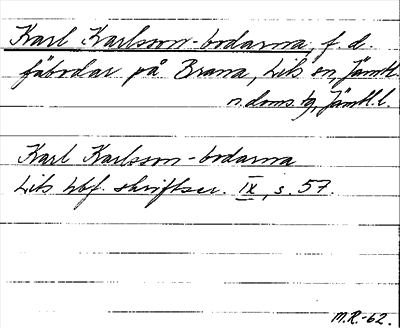 Karl Karlsson-bodarna, f. d.
fäbodar på Brana, Lits sn, Jämtl.
n. doms.
Karl Karlsson-bodarna
Lits hbf. skriftser. IX, s. 57.
M.R.-62.